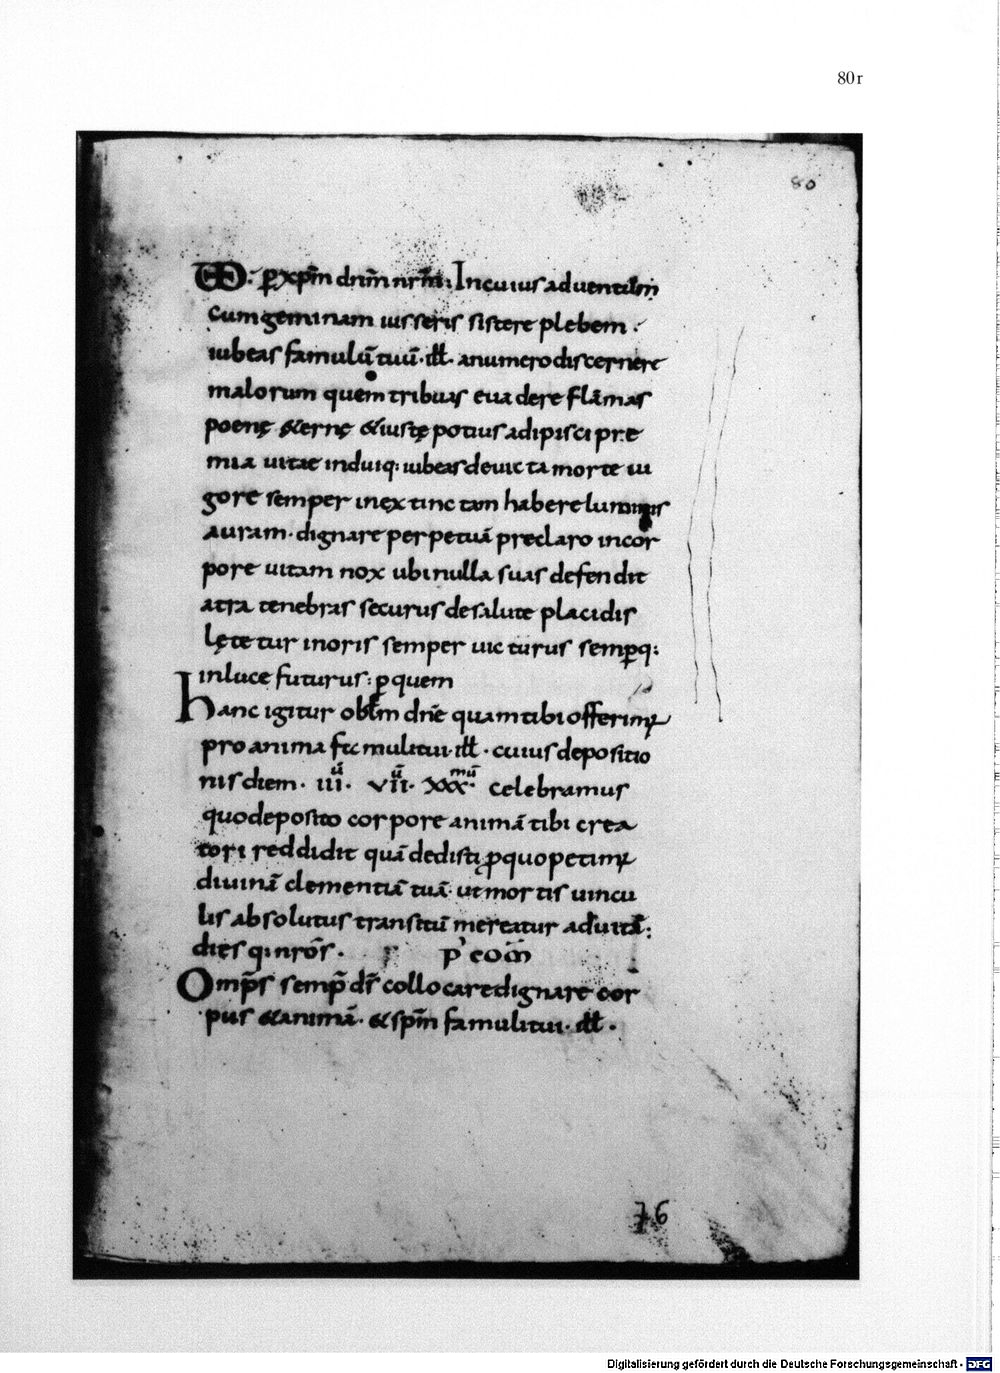 80r
80
UD: ꝑ xp̄m dn̄m nr̄m: In cuius aduentum
cum geminam iusseris sistere plebem.
iubeas famulū tuū ill̄. a numero discernere
malorum quem tribuas euadere flāmas
poenę &ernę & iustę potius adipisci pre
mia uitae induiq: iubeas deuicta morte ui
gore semper inextinctam habere luminis
auram. dignare perpetuā preclaro incor
pore uitam nox ubi nulla suas defendit
atra tenebras securus de salute placidis
lęte tur inoris semper uicturus semꝑq:
in luce futurus: ꝑ quem
hanc igitur obl̄m dn̄e quam tibi offerimꝰ
pro anima famuli tui ill̄. cuius depositio
nis diem. iiiū. viiū. xxxmū celebramus
quo deposito corpore animā tibi crea
tori reddidit quā dedisti ꝑ quo petimꝰ
diuinā clementiā tuā ut mortis uincu
lis absolutus transitū mereatur ad uitā:
diesq. nrōs. p' com̄
Omp̄s semp̄ ds̄ collocare dignare cor
pus & animā. & sp̄m famuli tui. ill̄.
76
Digitalisierung gefördert durch die Deutsche Forschungsgemeinschaft - DFG